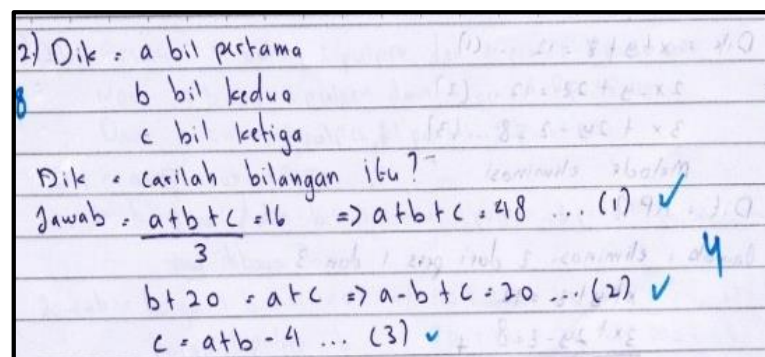 2) Dik = a bil pertama
8
b bil kedua
c bil ketiga
Dik = carilah bilangan itu?
Jawab = a+b+c/3 = 16 => a+b+c = 48 ... (1) ✓
4
b+20 = a+c => a-b+c = 20 ... (2) ✓
c = a+b-4 ... (3) ✓